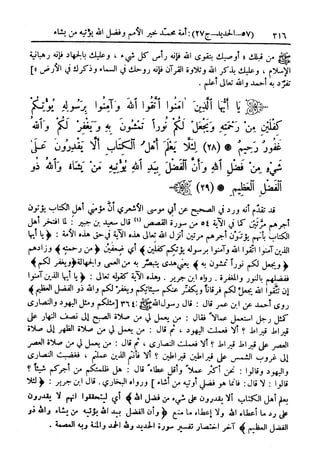 ٣١٦ (٥٧-الحديد-ج٢٧): أمة محمد خير الأمم وفضل الله يؤتيه من يشاء
ﷺ من قبلك «أوصيك بتقوى الله فإنه رأس كل شيء، وعليك بالجهاد فإنه رهبانية
الإسلام، وعليك بذكر الله وتلاوة القرآن فإنه روحك في السماء وذكرك في الأرض»
تفرد به أحمد والله تعالى أعلم.
يا أيها الذين آمنوا اتقوا الله وآمنوا برسوله يؤتكم
كفلين من رحمته ويجعل لكم نورا تمشون به ويغفر لكم والله
غفور رحيم (٢٨) لئلا يعلم أهل الكتاب ألا يقدرون على
شيء من فضل الله وأن الفضل بيد الله يؤتيه من يشاء والله ذو
الفضل العظيم (٢٩)
قد تقدم أنه ورد في الصحيح عن أبي موسى الأشعري أن مؤمني أهل الكتاب يؤتون
أجرهم مرتين كما في الآية ٥٤ من سورة القصص (١) قال سعيد بن جبير: لما افتخر أهل
الكتاب بأنهم يؤتون أجرهم مرتين أنزل الله تعالى هذه الآية في حق هذه الأمة: ﴿يا أيها
الذين آمنوا اتقوا الله وآمنوا برسوله يؤتكم كفلين﴾ أي ضعفين ﴿من رحمته﴾ وزادهم
﴿ويجعل لكم نوراً تمشون به﴾ يعني هدى يتبصر به من العمى والجهالة ﴿ويغفر لكم﴾
ففضلهم بالنور والمغفرة. رواه ابن جرير. وهذه الآية كقوله تعالى: ﴿يا أيها الذين آمنوا
إن تتقوا الله يجعل لكم فرقاناً ويكفر عنكم سيئاتكم ويغفر لكم والله ذو الفضل العظيم﴾
روى أحمد عن ابن عمر قال: قال رسول الله ﷺ: ٣٦٤ [مثلكم ومثل اليهود والنصارى
كمثل رجل استعمل عمالاً فقال: من يعمل لي من صلاة الصبح إلى نصف النهار على
قيراط قيراط؟ ألا فعملت اليهود، ثم قال: من يعمل لي من صلاة الظهر إلى صلاة
العصر على قيراط قيراط؟ ألا فعملت النصارى، ثم قال: من يعمل لي من صلاة العصر
إلى غروب الشمس على قيراطين قيراطين؟ ألا فأنتم الذين عملتم، فغضبت النصارى
واليهود وقالوا: نحن أكثر عملاً وأقل عطاءً قال: هل ظلمتكم من أجركم شيئاً؟
قالوا: لا قال: فإنما هو فضلي أوتيه من أشاء] ورواه البخاري. قال ابن جرير: ﴿لئلا
يعلم أهل الكتاب ألا يقدرون على شيء من فضل الله﴾ أي ليتحققوا أنهم لا يقدرون
على رد ما أعطاه الله ولا إعطاء ما منع ﴿وأن الفضل بيد الله يؤتيه من يشاء والله ذو
الفضل العظيم﴾ آخر اختصار تفسير سورة الحديد ولله الحمد والمنة وبه العصمة.